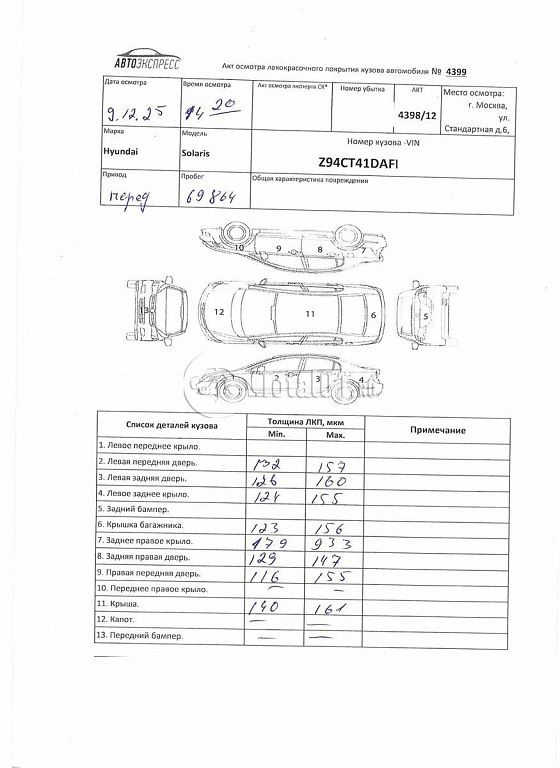 АВТОЭКСПРЕСС
Акт осмотра лакокрасочного покрытия кузова автомобиля № 4399
Дата осмотра
Время осмотра
Акт осмотра эксперта СК*
Номер убытка
АКТ
Место осмотра:
9.12.25
14 20
4398/12
г. Москва,
ул.
Стандартная д.6,
Марка
Модель
Номер кузова -VIN
Hyundai
Solaris
Z94CT41DAFI
Привод
Пробег
Общая характеристика повреждения
перед
69864
10 9 8 7
13 12 11 6 5
2 3 4
TotalPic
Список деталей кузова
Толщина ЛКП, мкм
Примечание
Min. Max.
1. Левое переднее крыло.
2. Левая передняя дверь. 132 157
3. Левая задняя дверь. 126 160
4. Левое заднее крыло. 124 155
5. Задний бампер.
6. Крышка багажника. 123 156
7. Заднее правое крыло. 179 933
8. Задняя правая дверь. 129 147
9. Правая передняя дверь. 116 155
10. Переднее правое крыло. — —
11. Крыша. 140 161
12. Капот. — —
13. Передний бампер. — —